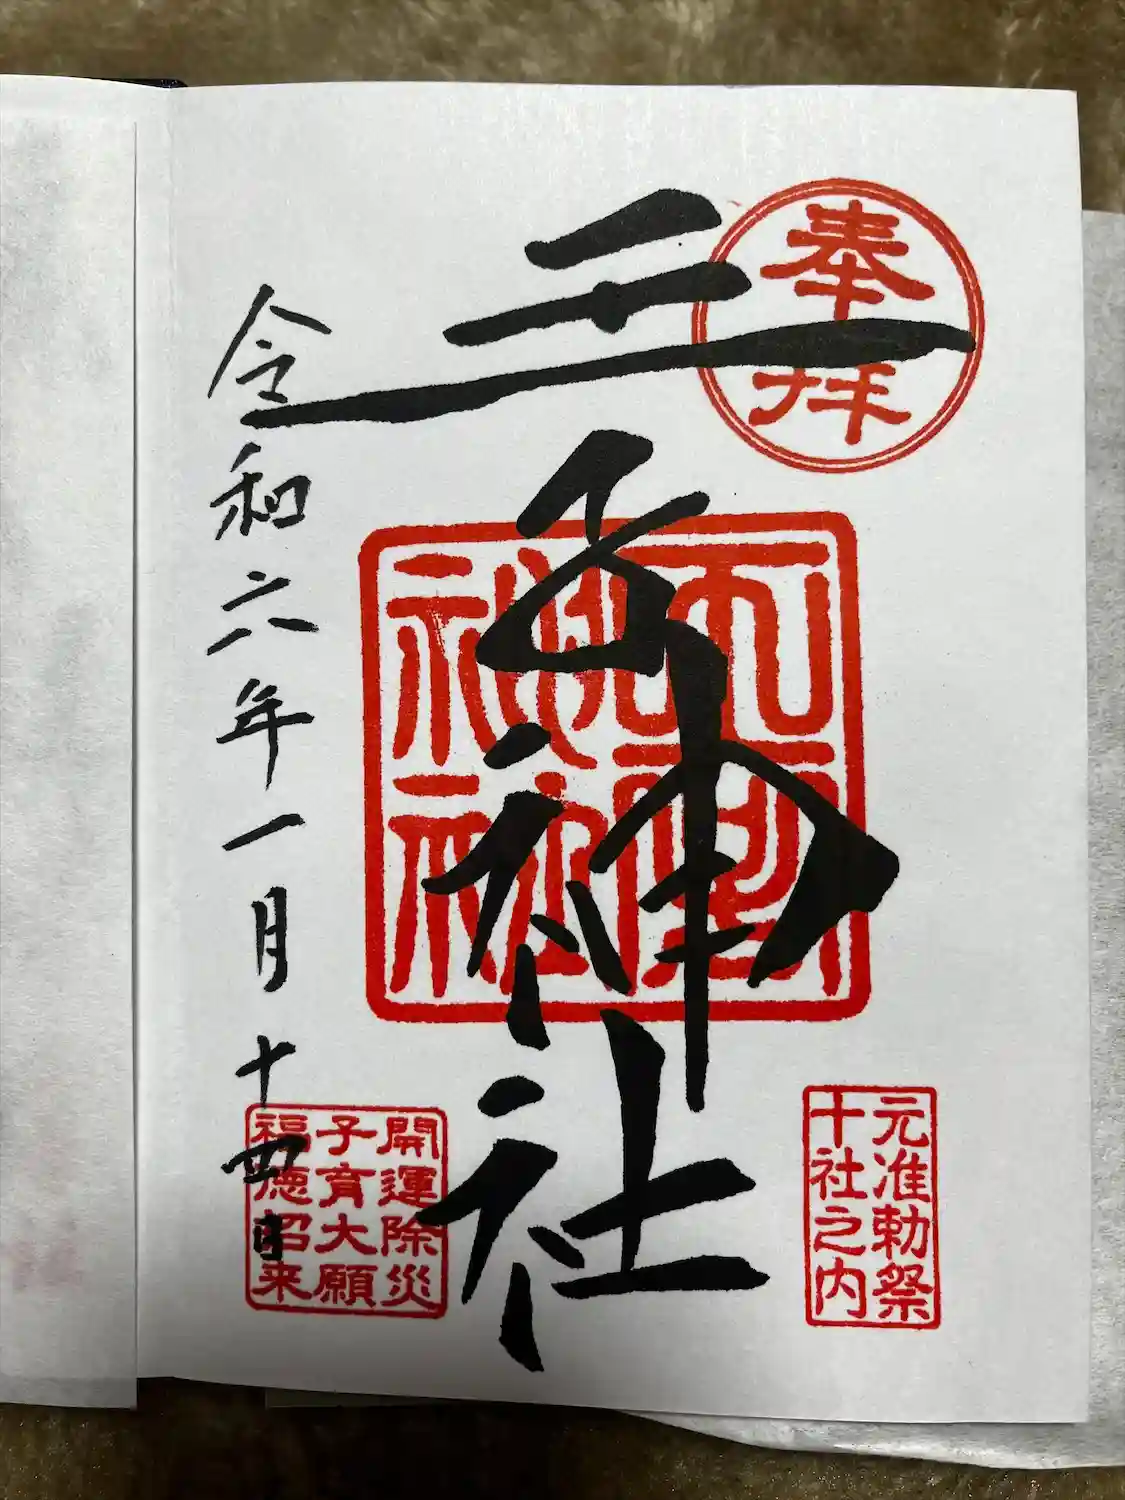 奉拝
元准勅祭
十社之内
王子神社
開運除災
子育大願
福徳招来
令和六年一月十四日